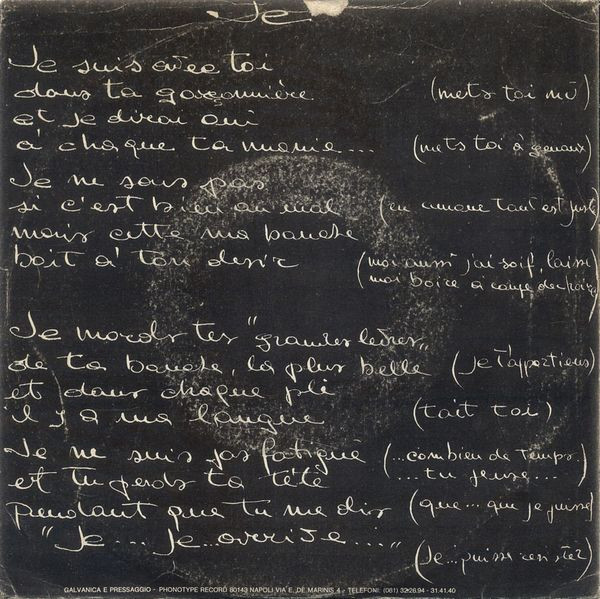 Je
Je suis avec toi
dans ta garçonnière (mets toi nü)
et je dirai oui
à chaque ta manie... (mets toi à genoux)
Je ne sais pas
si c'est bien ou mal (en amour tout est juste
mais cette ma bouche
boit à ton desir (moi aussi j'ai soif, laisse
moi boire à
Je mords tes "grandes lèvres"
de ta bouche, la plus belle (je t'appartiens)
et dans chaque pli
il y a ma langue (tait toi)
Je ne suis pas fatiguè (...combien de temps
et tu perds ta tété ... tu ...)
pendant que tu me dis (que... que je puisse)
"Je... je...arrive...." (Je...puisse
GALVANICA E PRESSAGGIO - PHONOTYPE RECORD 80143 NAPOLI VIA E. DE MARINIS 4 - TELEFONI: (081) 32.26.94 - 31.41.40